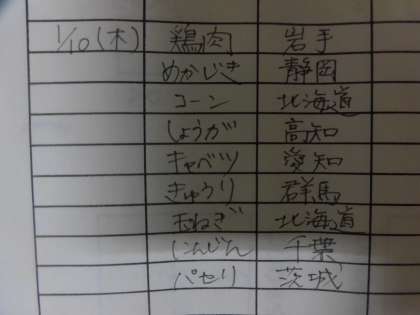 1/10(木) 鶏肉 岩手
めかじき 静岡
コーン 北海道
しょうが 高知
キャベツ 愛知
きゅうり 群馬
玉ねぎ 北海道
にんじん 千葉
パセリ 茨城